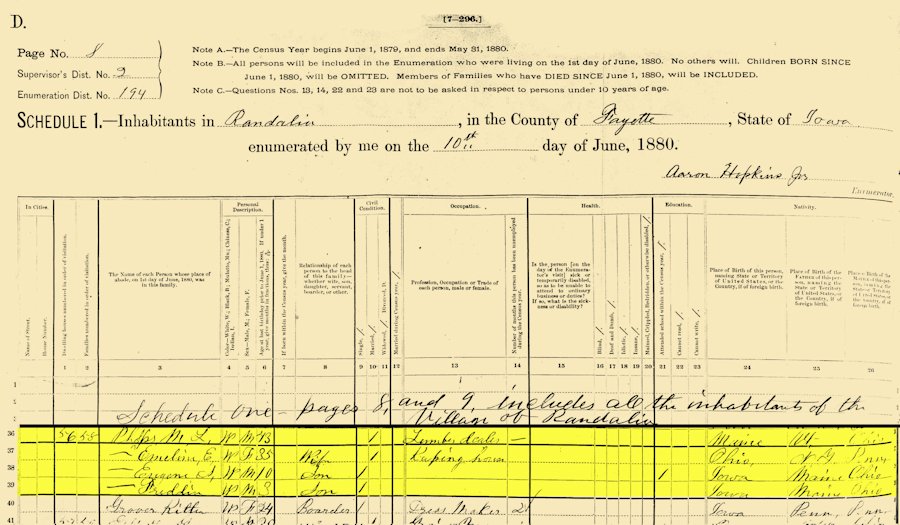 D.
[7-296.]
Page No. 8
Supervisor's Dist. No. 2
Enumeration Dist. No. 194
Note A.—The Census Year begins June 1, 1879, and ends May 31, 1880.
Note B.—All persons will be included in the Enumeration who were living on the 1st day of June, 1880. No others will. Children BORN SINCE
June 1, 1880, will be OMITTED. Members of Families who have DIED SINCE June 1, 1880, will be INCLUDED.
Note C.—Questions Nos. 13, 14, 22 and 23 are not to be asked in respect to persons under 10 years of age.
SCHEDULE 1.—Inhabitants in Randalia, in the County of Fayette, State of Iowa
enumerated by me on the 10th day of June, 1880.
Aaron Hopkins Jr
Enumerator.
In Cities.
Personal Description.
Civil Condition.
Occupation.
Health.
Education.
Nativity.
Name of Street.
House Number.
Dwelling houses numbered in order of visitation.
Families numbered in order of visitation.
The Name of each Person whose place of abode, on 1st day of June, 1880, was in this family.
Color—White, W; Black, B; Mulatto, Mu; Chinese, C; Indian, I.
Sex—Male, M; Female, F.
Age at last birthday prior to June 1, 1880. If under 1 year, give months in fractions, thus: 3/12.
If born within the Census year, give the month.
Relationship of each person to the head of this family—whether wife, son, daughter, servant, boarder, or other.
Single, /
Married, /
Widowed, / Divorced, D.
Married during Census year, /
Profession, Occupation or Trade of each person, male or female.
Number of months this person has been unemployed during the Census year.
Is the person [on the day of the Enumerator's visit] sick or temporarily disabled, so as to be unable to attend to ordinary business or duties? If so, what is the sickness or disability?
Blind, /
Deaf and Dumb, /
Idiotic, /
Insane, /
Maimed, Crippled, Bedridden, or otherwise disabled, /
Attended school within the Census year, /
Cannot read, /
Cannot write, /
Place of Birth of this person, naming State or Territory of United States, or the Country, if of foreign birth.
Place of Birth of the FATHER of this person, naming the State or Territory of United States, or the Country, if of foreign birth.
1 2 3 4 5 6 7 8 9 10 11 12 13 14 15 16 17 18 19 20 21 22 23 24 25 26
1
Schedule one - pages 8, and 9, includes all the inhabitants of the
Village of Randalia
36 M L, W M 43 1 Lumber dealer — Maine Ohio
37 — Emeline, E. W F 35 Wife 1 Keeping house Ohio, Penn
38 — W M 10 Son 1 1 Iowa Maine Ohio
39 — W M 3 Son 1 Iowa Maine Ohio
40 Grover W F 24 Boarder 1 Dress Maker 2 Iowa Penn, Penn.
41